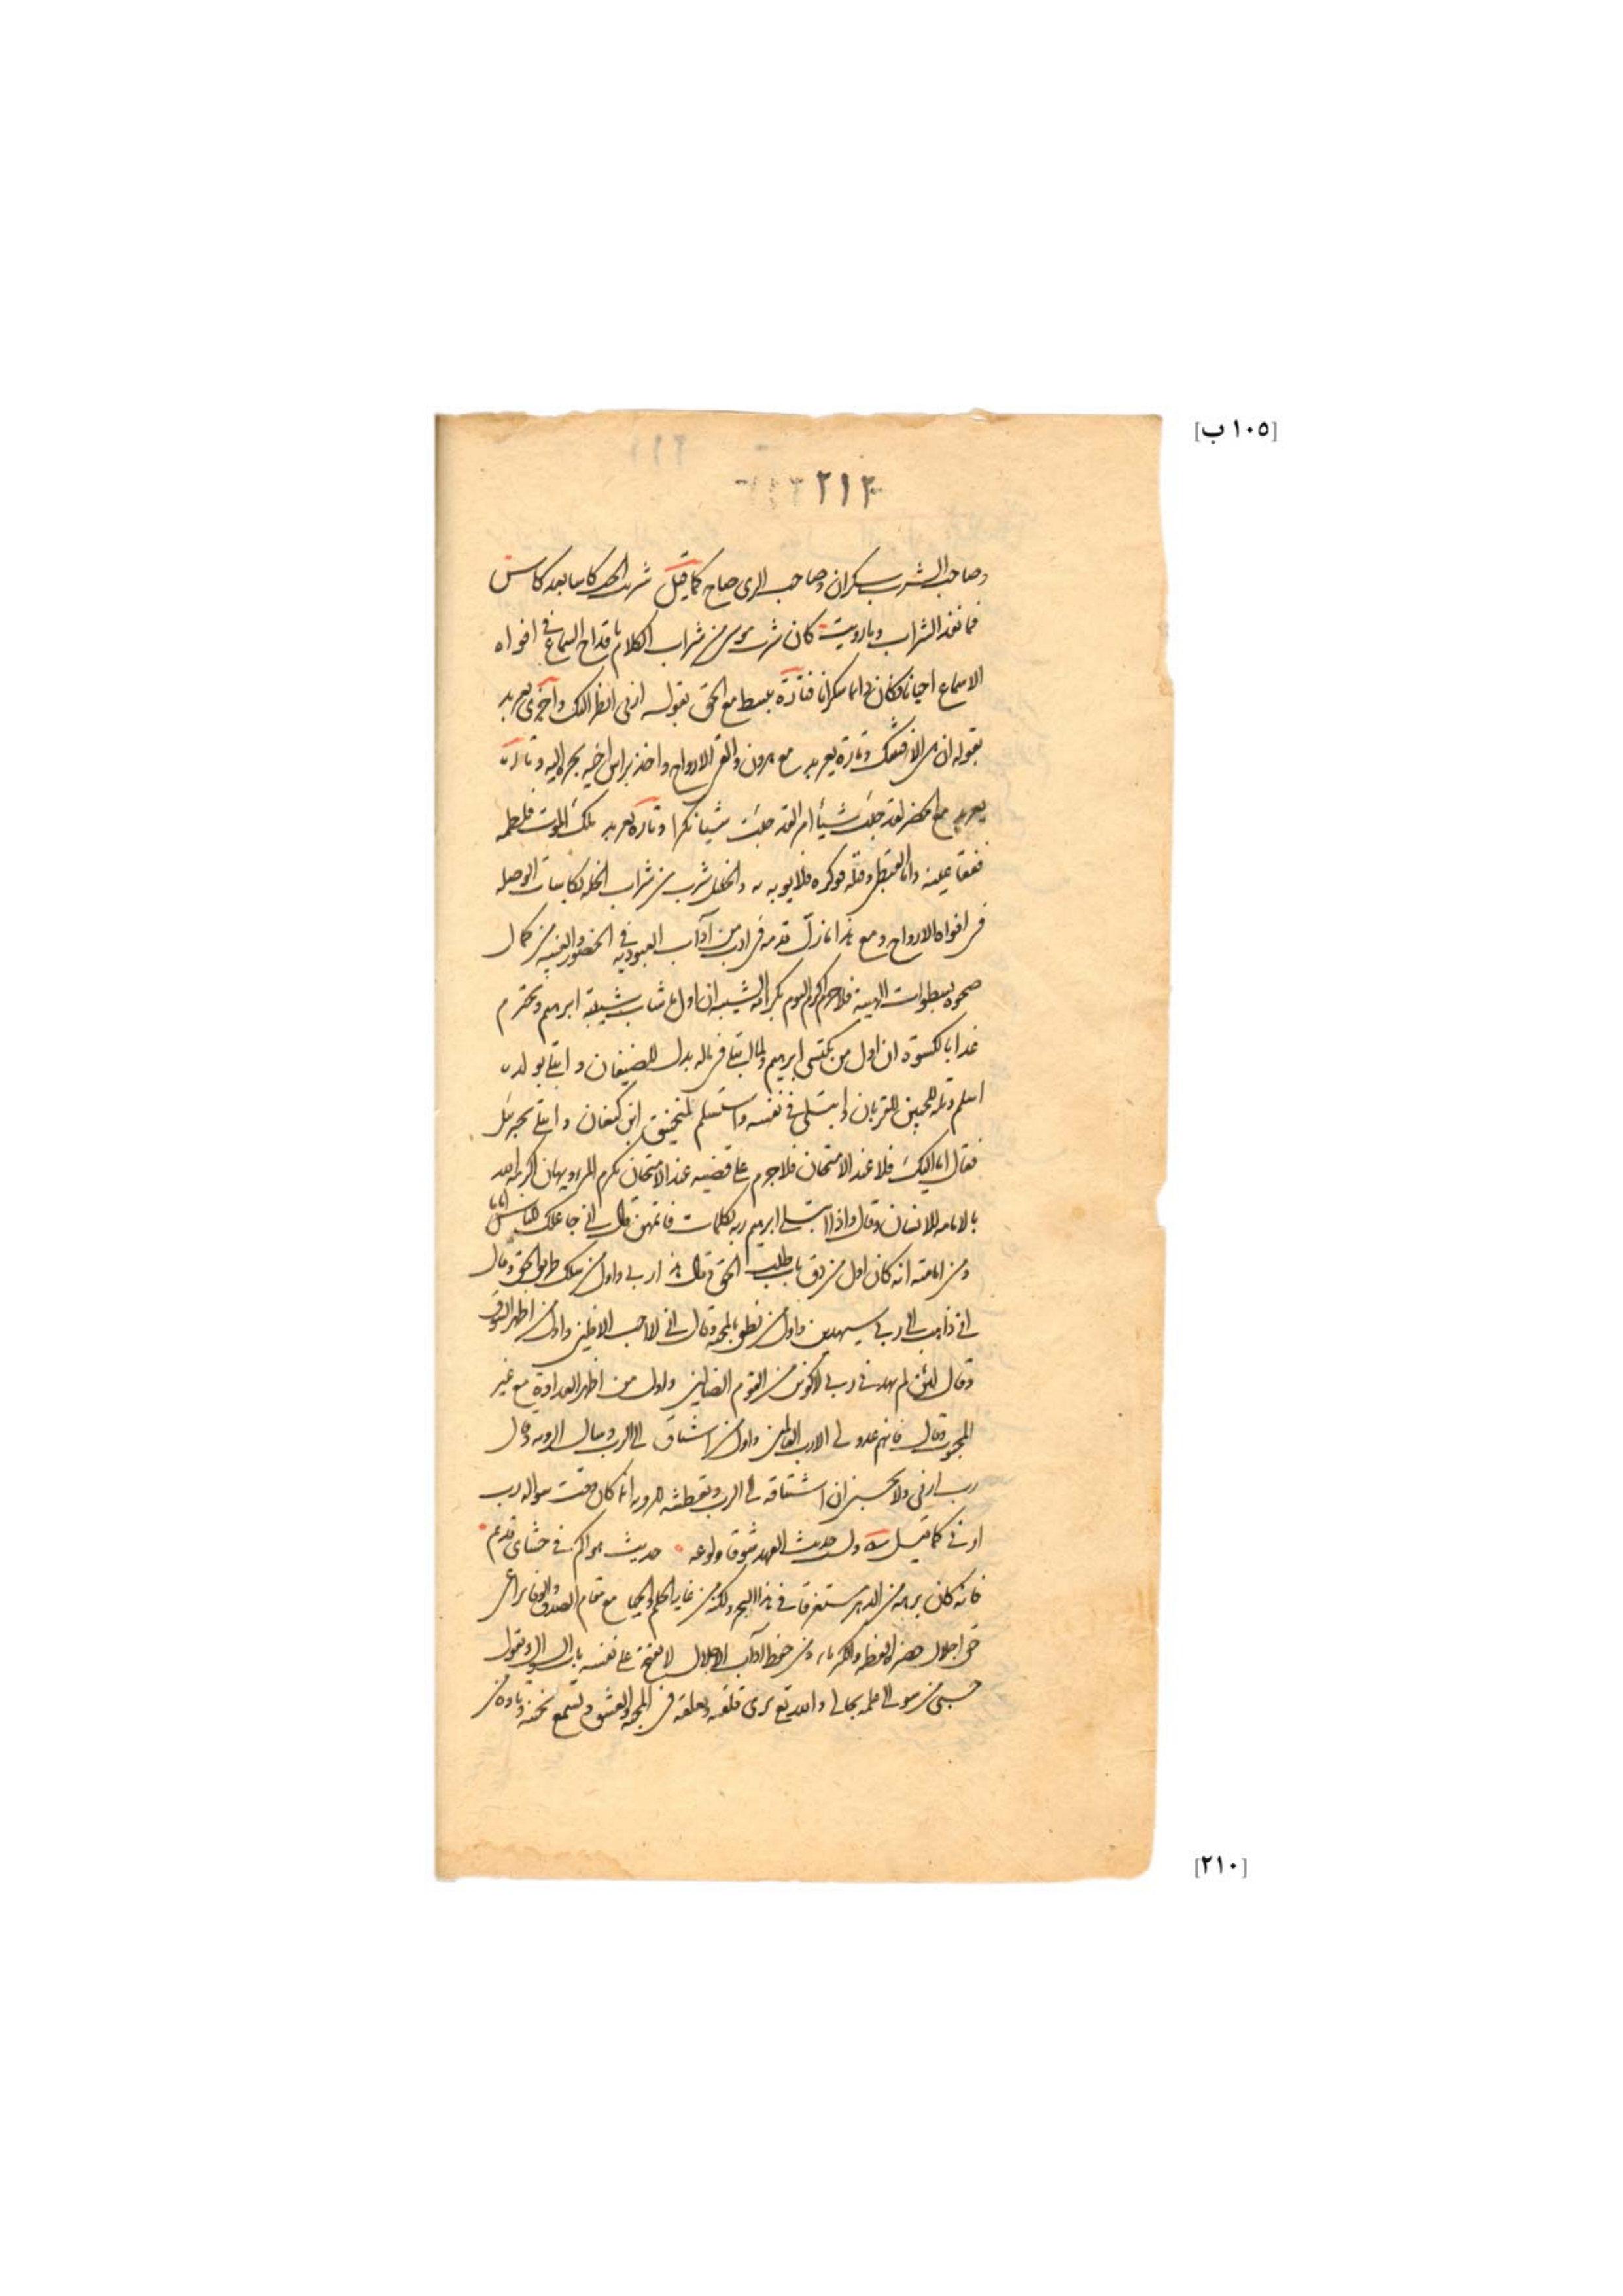 [١٠٥ ب]
٢١٢
وصاحب الشرب سكران وصاحب الرى صاح كما قيل شربت الحب كاسا بعد كاس
فما نفد الشراب وما رويت كان شرب موسى من شراب الكلام باقداح السماع فى افواه
الاسماع احيانا فكان دائما سكرانا فتارة يبسط مع الحق بقوله ارنى انظر اليك واخرى يعربد
بقوله ان هى الا فتنتك وتارة يعربد مع هرون والقى الالواح واخذ براس اخيه يجره اليه وتارة
يعربد مع الخضر لقد جئت شيأ امرا لقد جئت شيا نكرا وتارة يعربد ملك الموت فلطمه
ففقا عينه واما القبطى وقتله فوكزه فلا يوبه به والخليل شرب من شراب الخلة بكاسات الوصله
فى افواه الارواح ومع هذا ما زل قدمه فى ادب من آداب العبودية فى الحضور والغيبة من كمال
صحوه بسطوات الهيبة فلا جرم اكرم اليوم بكرامة الشيبه ان اول ما شاب شيبة ابرهيم ويحترم
غدا بالكسوة ان اول من يكتسى ابرهيم ولما ابتلى فى ماله بدل للضيفان وابتلى بولده
اسلم وتله للجبين للقربان وابتلى فى نفسه واستسلم لمنجنيق ابن كنعان وابتلى بجبرئيل
فقال اما اليك فلا عند الامتحان فلا جرم على قضيه عند الامتحان يكرم المرء ويهان اكرمه الله
بالامامه للانسان وقال واذ ابتلى ابرهيم ربه بكلمات فاتمهن قال انى جاعلك للناس اماما
ومن امامته انه كان اول من دق باب طلب الحق وقال هذا ربى واول من سلك طريق الحق وقال
انى ذاهب الى ربى سيهدين واول من نطق بالمحبة وقال انى لا احب الافلين واول من اظهر الشوق
وقال لئن لم يهدنى ربى لاكونن من القوم الضالين واول من اظهر العداوة مع غير
المحبوب وقال فانهم عدو لى الا رب العالمين واول من اشتاق الى الرب وسال الرويه وقال
رب ارنى ولا تحسبن ان اشتياقه الى الرب وتعطشه للرويه انما كان وقت سواله رب
ارنى كما قيل وليس حديث العهد شوق ولوعه حديث هواكم فى حشاى قديم
فانه كان برهة من الدهر مستغرقا فى هذا البحر ولكنه من غاية الحلم والحيا مع مقام الصدق والوفا يراعى
حق اجلال حضرة العظمه والكبرياء ومن حفظ اداب الاجلال لا يفتح على نفسه باب السوال ويقول
حسبى من سوالى علمه بحالى والله تع يرى قلقه وتعلقه فى المحبة والعشق ويسمع
[٢١٠]